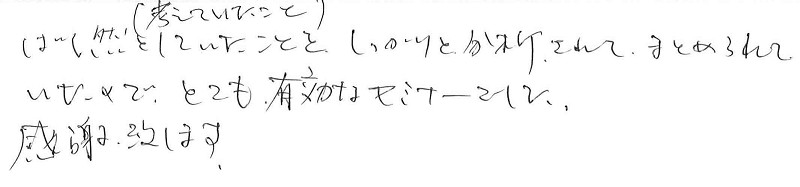 (考えていたこと)
ばく然としていたことを しっかりと分析されて、まとめられて
いたので、とても有効なセミナーでした。
感謝致します。